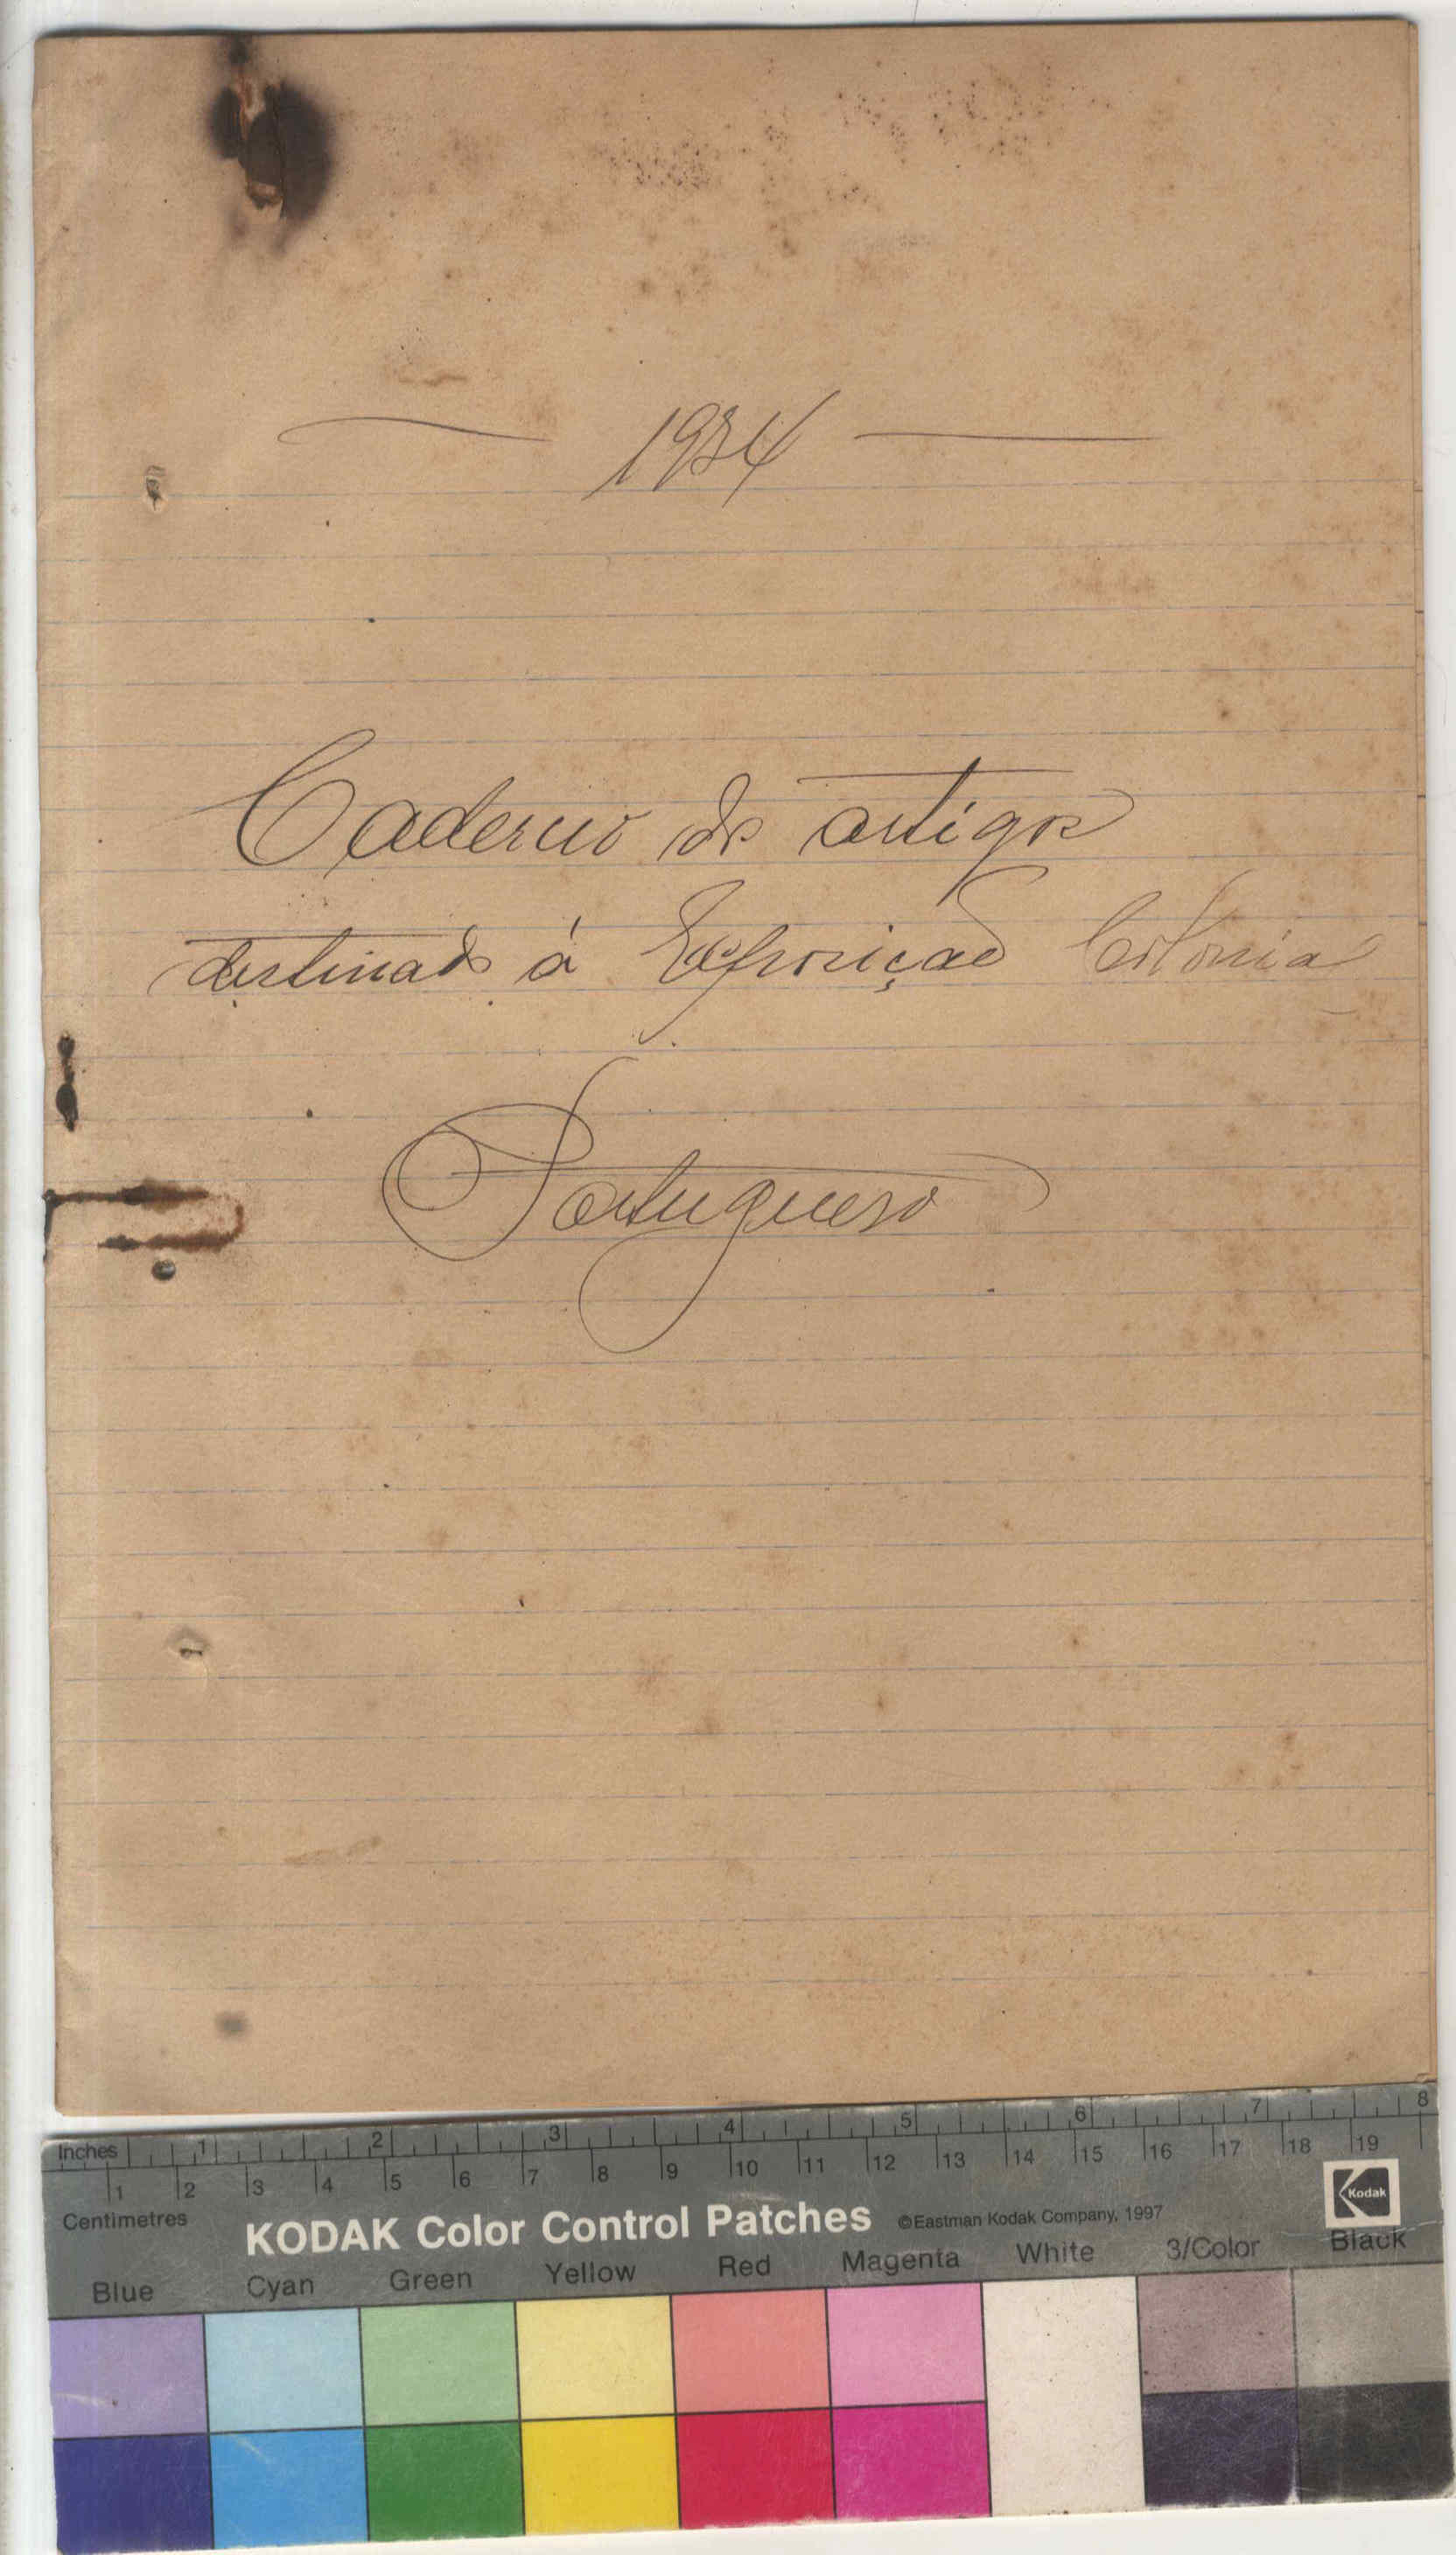 1934
Caderno de artigos
destinado á Exposição Colonial
Portugueza
Inches 1 2 3 4 5 6 7 8
1 2 3 4 5 6 7 8 9 10 11 12 13 14 15 16 17 18 19
Centimetres
KODAK Color Control Patches ©Eastman Kodak Company, 1997 Kodak
Blue Cyan Green Yellow Red Magenta White 3/Color Black